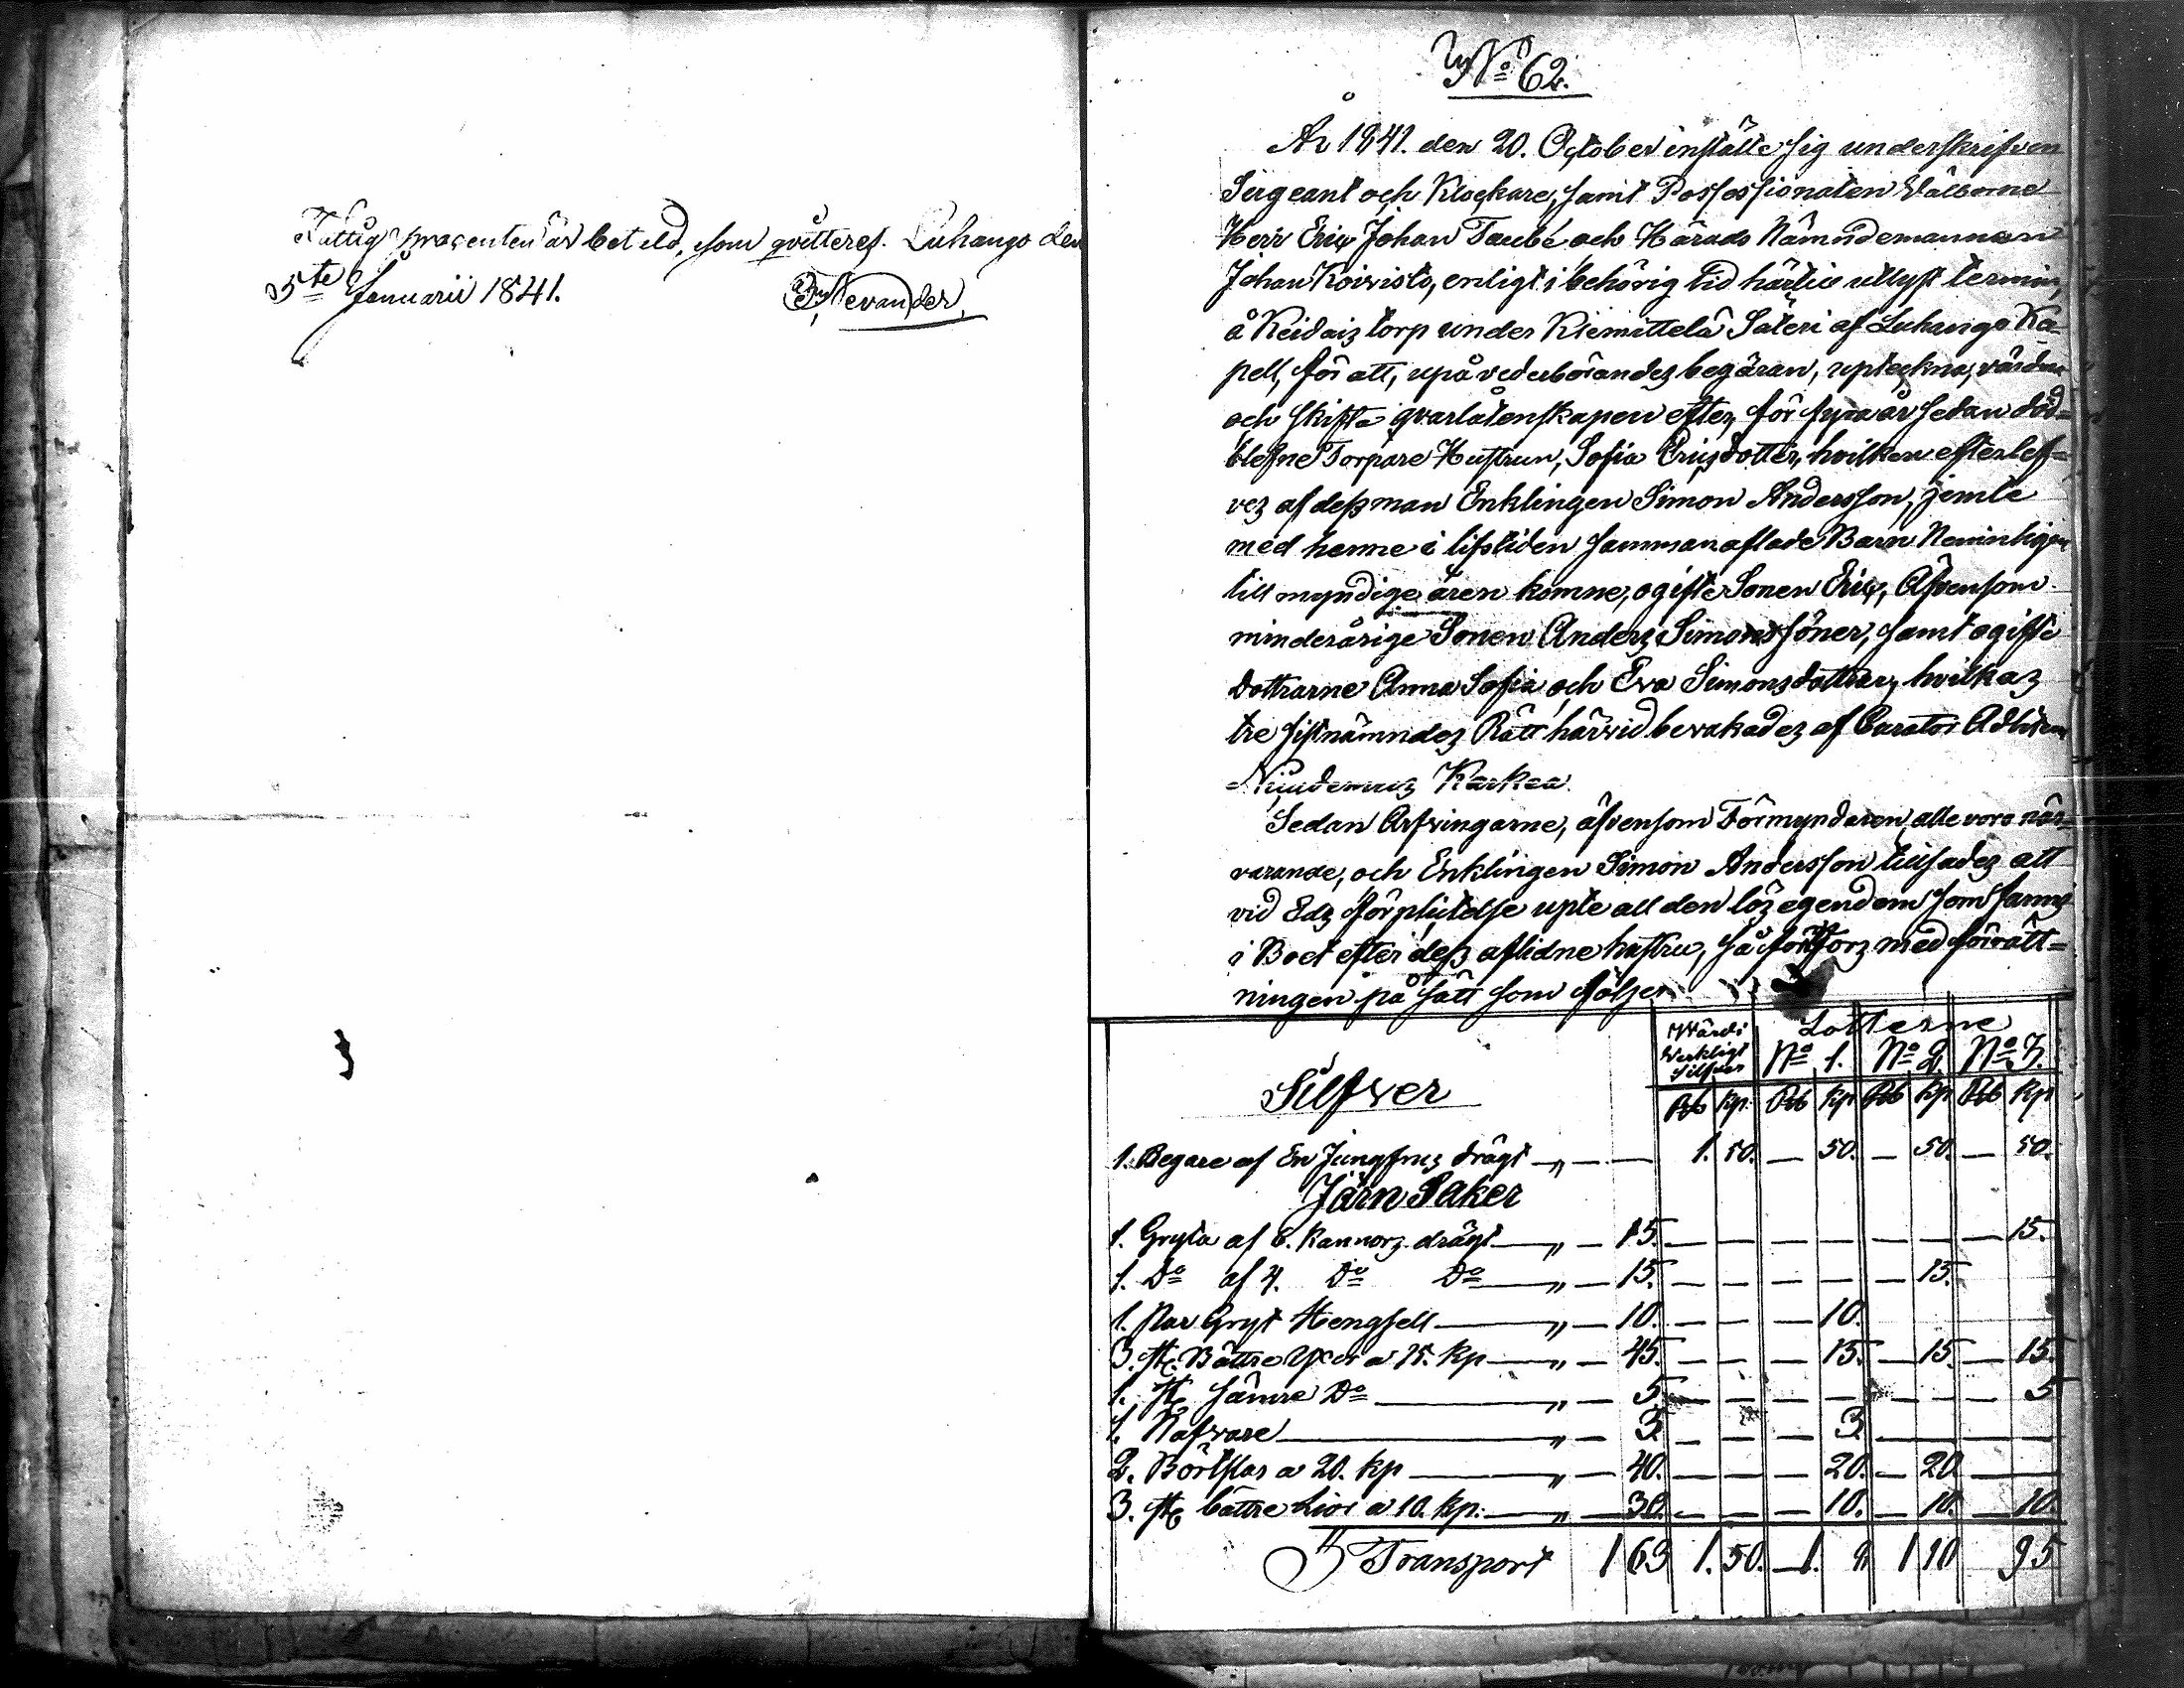 Fattig procenten är betald, som qvitteres. Luhango den
5te Januarii 1841.
Nevander
No 62.
År 1841. den 20. October instälte sig underskrifven
Sergeant och Klockare, samt Possessionaten Välborne
Herr Eric Johan Taube och Härads Nämndemannen
Johan Koivisto, enligt i behörig tid härtil utlyst termin,
å Keidais torp under Kiemittelä Säteri af Luhango Ka-
pell, för att, uppå vederbörandes begäran, upteckna, värdera
och skifta qvarlåtenskapen efter, för fyra år sedan död-
blefne Torpare Hustrun, Sofia Ericsdotter, hvilken efterlef-
ves af dess man Enklingen Simon Andersson, jemte
med henne i lifstiden sammanaflade Barn Neminligen
till myndige åren komne, ogifte Sonen Eric, Äfvensom
minderårige Sonen Anders Simonssöner, samt ogifte
Dottrarne Anna Sofia, och Eva Simonsdöttrar, hvilkas
tre sistnämndes Rätt härvid bevakades af Curator Adlitem
Karkea.
Sedan Arfvingarne, äfvensom Förmyndaren, alle voro när-
varande, och Enklingen Simon Andersson tillsades att
vid Eds förplictelse upte all den lös egendom som fanns
i Boet efter dess aflidne hustru, så fortfors med förrätt-
ningen på sätt som följer
Wärdi Verkligt Silfver Lotterne
No 1. No 2. No 3.
Silfver
Rub Kp. Rub Kp Rub Kp Rub Kp
1. Begare af En Jungfrus drägt — " — — 1. 50. — 50. — 50. — 50.
Järn Saker
1. Gryta af 6. Kannors drägt — " — 15. — — — — — — — 15.
1. Do af 4. Do Do — " — 15. — — — — — 15.
1. Par Gryt Hengsell — " — 10. — — — 10.
3. st. Bättre Yxor a 15. Kp — " — 45. — — — 15. — 15. — 15.
1. st. sämre Do — " — 5. — — — — — — — 5
1. Nafvare — " — 3. — — — 3. — — — —
2. Böltslar a 20. Kp — " — 40. — — — 20. — 20. — —
3. st. bättre Liar a 10. Kp. — " — 30. — — — 10. — 10. — 10.
Transport 1 63 1. 50. — 1. 8 1 10 95